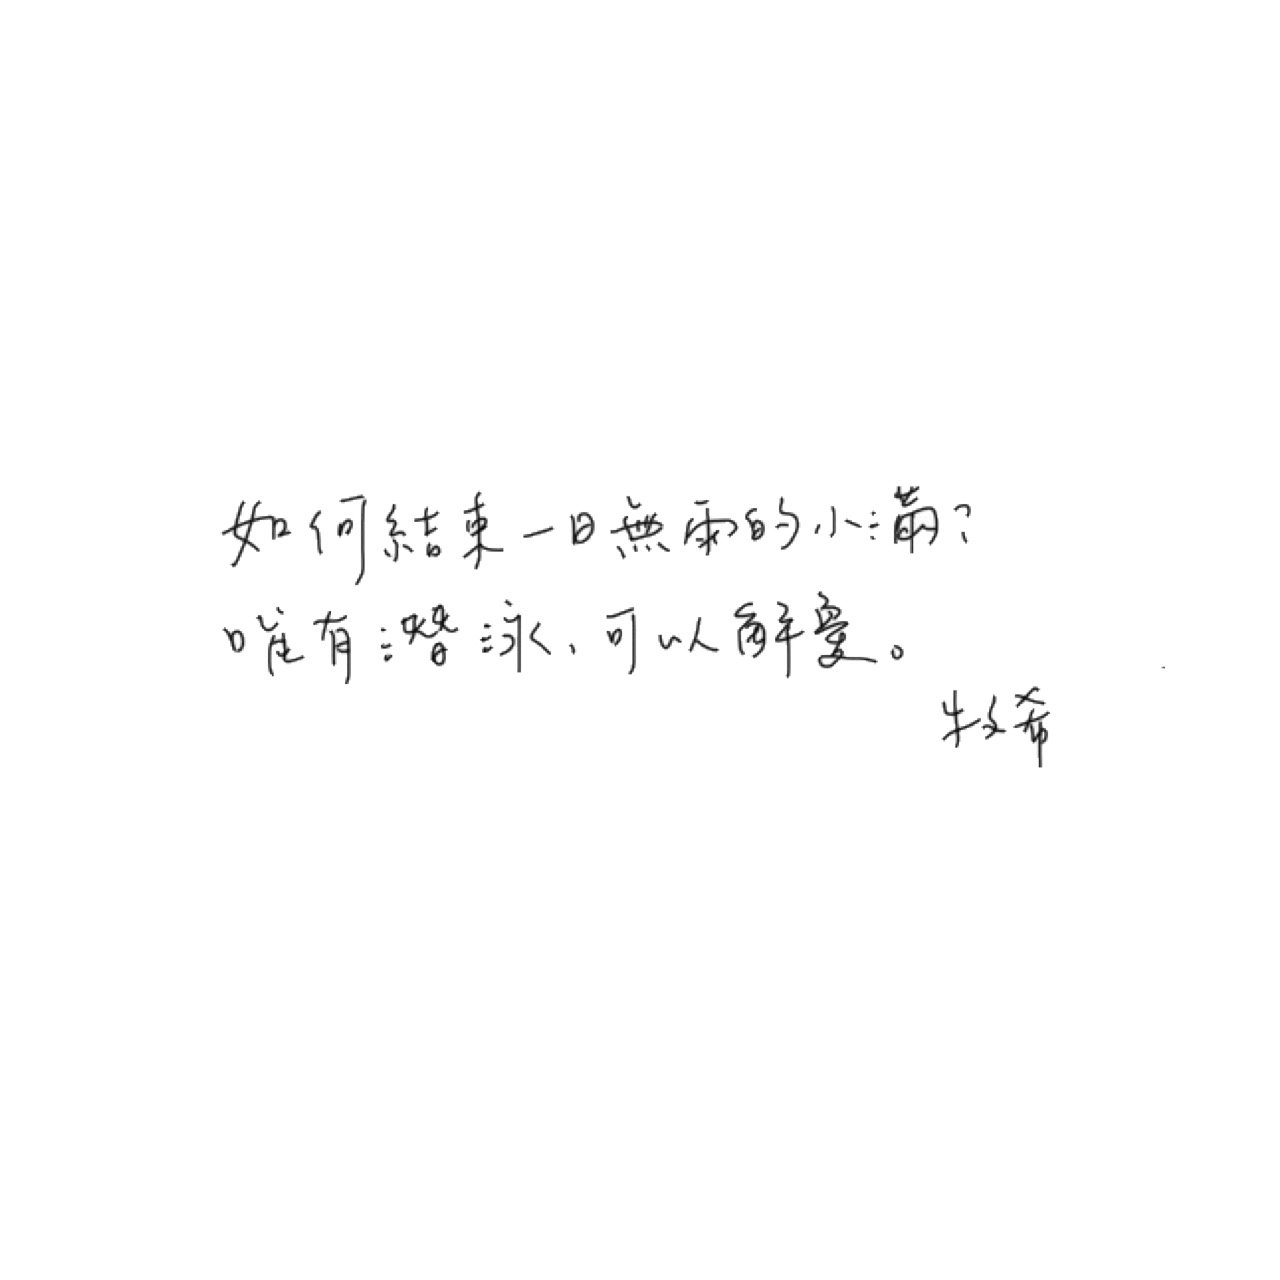 如何結束一日無雨的小滿？
唯有潛泳、可以解憂。
牧希